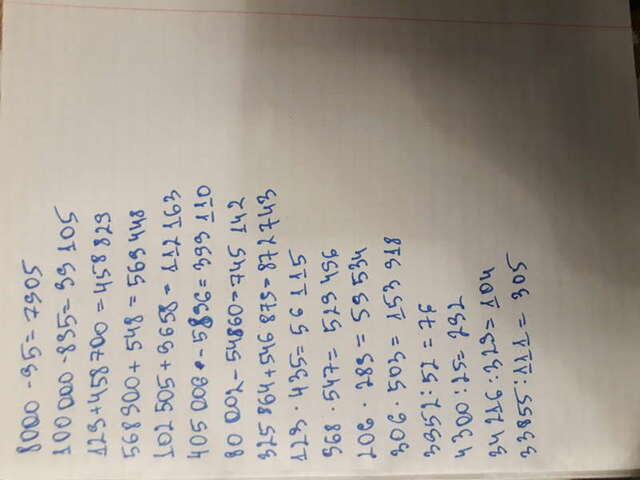 8000 - 95 = 7905
100 000 - 895 = 99 105
129 + 458 700 = 458 829
568 900 + 548 = 569 448
102 505 + 9658 = 112 163
405 006 - 5896 = 399 110
80 002 - 54860 = 745 142
325 864 + 546 879 = 872 743
129 · 435 = 56 115
968 · 547 = 529 496
206 · 289 = 59 534
306 · 503 = 153 918
3952 : 52 = 76
4300 : 25 = 232
34 216 : 329 = 104
33855 : 111 = 305